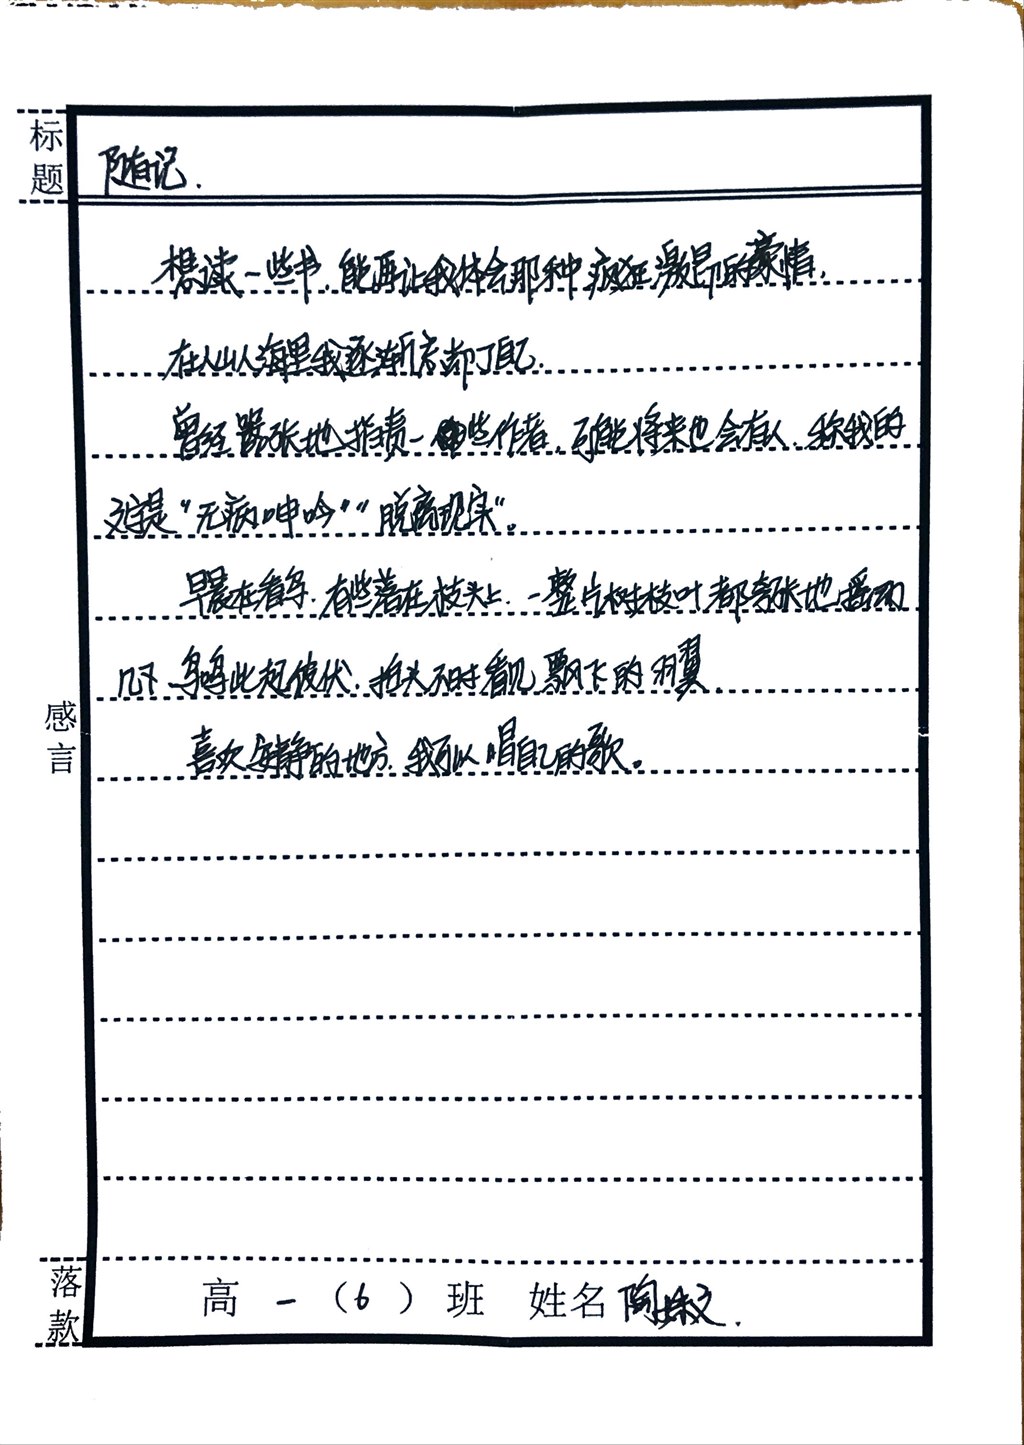 标题
随有记.
想读一些书,能再让我体会那种疯狂激昂的豪情.
在人山人海里我逐渐忘却了自己.
曾经嚣张地指责一些作者,可能将来也会有人称我的
文字是“无病呻吟”“脱离现实”。
早晨在看鸟.有些落在枝头上.一整片树枝叶都夸张地摇
几下.鸟鸣此起彼伏.抬头不时看见飘下的羽翼.
喜欢安静的地方.我可以唱自己的歌。
感言
落款
高一(6)班 姓名 陶